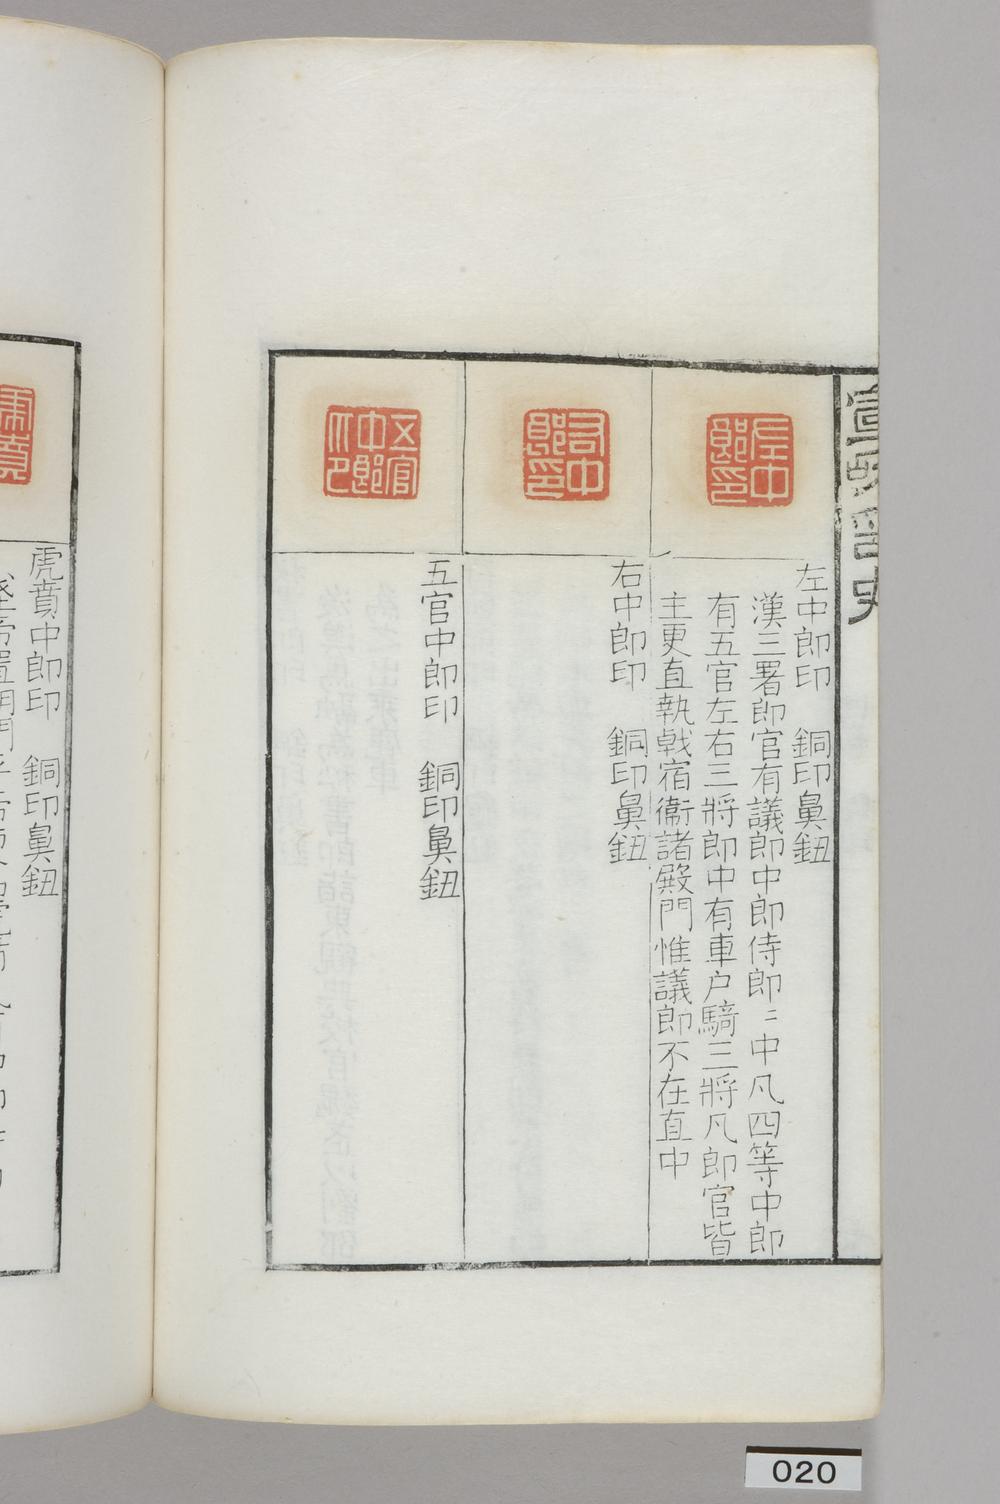 宣和印史
左中郎印
左中郎印　銅印鼻鈕
漢三署郎官有議郎中郎侍郎〻中凡四等中郎
有五官左右三將郎中有車户騎三將凡郎官皆
主更直執戟宿衞諸殿門惟議郎不在直中
右中郎印
右中郎印　銅印鼻鈕
五官中郎印
五官中郎印　銅印鼻鈕
虎賁
虎賁中郎印　銅印鼻鈕
020